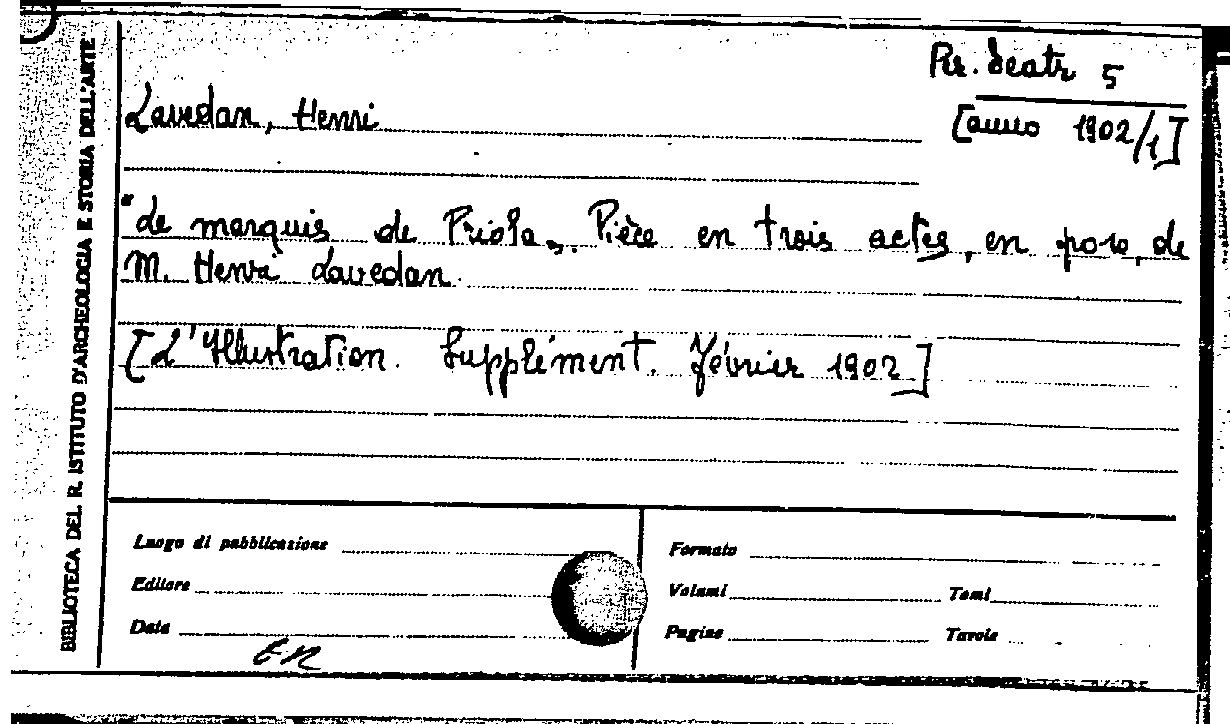 BIBLIOTECA DEL R. ISTITUTO D'ARCHEOLOGIA E STORIA DELL'ARTE
Per. Teatr. 5
[anno 1902/1]
Lavedan, Henri
"Le marquis de Priola". Pièce en trois actes, en prose, de
M. Henri Lavedan.
[L'Illustration. Supplément. Février 1902]
Luogo di pubblicazione
Editore
Data
Formato
Volumi Tomi
Pagine Tavole